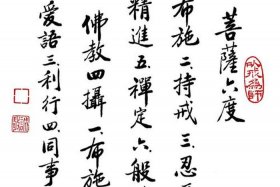 菩薩六度
布施二.持戒三.忍
精進五.禪定六.般
佛教四攝一.布施
愛語三.利行四.同事